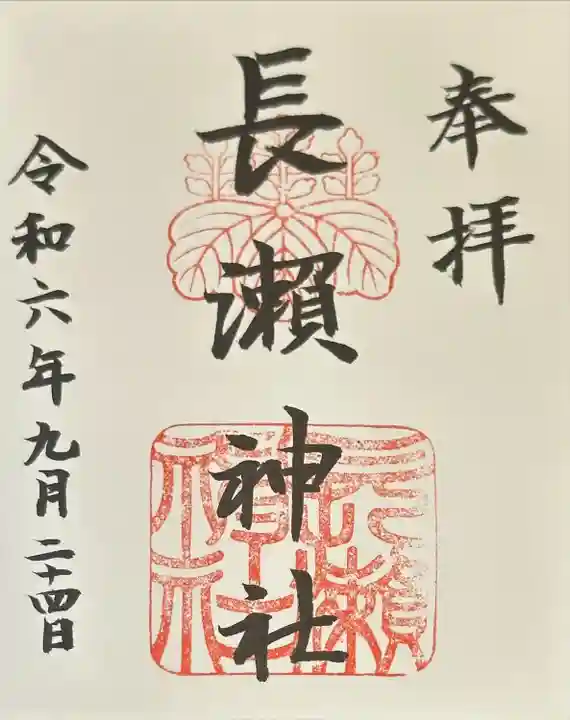 奉拝
長瀬神社
令和六年九月二十四日
長瀬神社